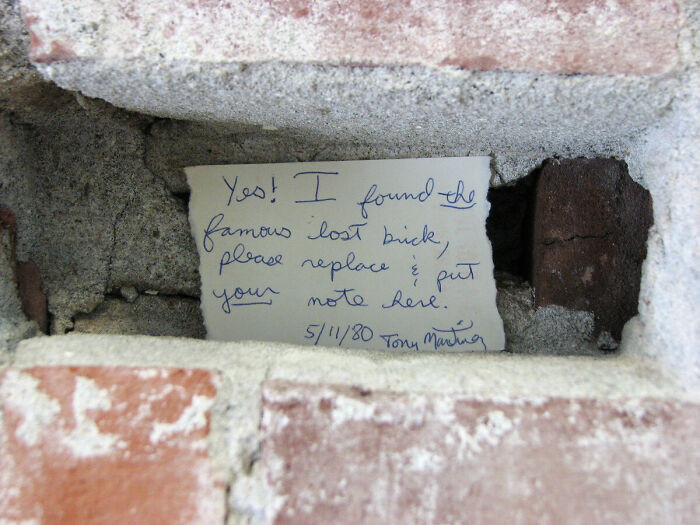 Yes! I found the
famous lost brick,
please replace & put
your note here.
5/11/80 Tony Martinez